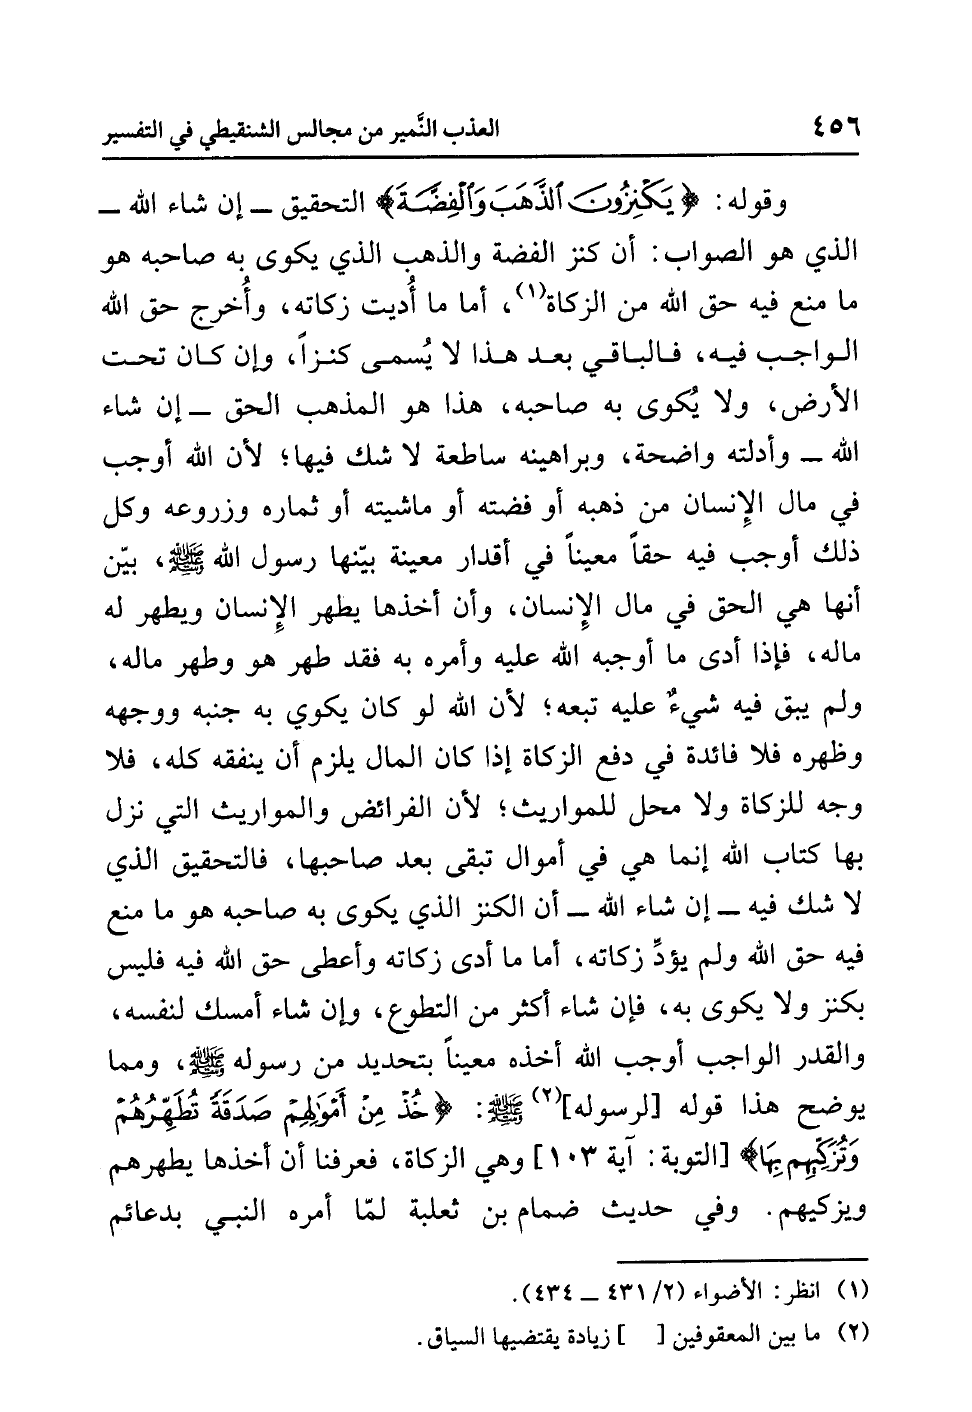 ٤٥٦ العذب النَّمير من مجالس الشنقيطي في التفسير
وقوله: ﴿يَكْنِزُونَ الذَّهَبَ وَالْفِضَّةَ﴾ التحقيق ـ إن شاء الله ـ
الذي هو الصواب: أن كنز الفضة والذهب الذي يكوى به صاحبه هو
ما منع فيه حق الله من الزكاة(١)، أما ما أُديت زكاته، وأُخرج حق الله
الواجب فيه، فالباقي بعد هذا لا يُسمى كنزاً، وإن كان تحت
الأرض، ولا يُكوى به صاحبه، هذا هو المذهب الحق ـ إن شاء
الله ـ وأدلته واضحة، وبراهينه ساطعة لا شك فيها؛ لأن الله أوجب
في مال الإنسان من ذهبه أو فضته أو ماشيته أو ثماره وزروعه وكل
ذلك أوجب فيه حقاً معيناً في أقدار معينة بيّنها رسول الله ﷺ، بيّن
أنها هي الحق في مال الإنسان، وأن أخذها يطهر الإنسان ويطهر له
ماله، فإذا أدى ما أوجبه الله عليه وأمره به فقد طهر هو وطهر ماله،
ولم يبق فيه شيءٌ عليه تبعه؛ لأن الله لو كان يكوي به جنبه ووجهه
وظهره فلا فائدة في دفع الزكاة إذا كان المال يلزم أن ينفقه كله، فلا
وجه للزكاة ولا محل للمواريث؛ لأن الفرائض والمواريث التي نزل
بها كتاب الله إنما هي في أموال تبقى بعد صاحبها، فالتحقيق الذي
لا شك فيه ـ إن شاء الله ـ أن الكنز الذي يكوى به صاحبه هو ما منع
فيه حق الله ولم يؤدِّ زكاته، أما ما أدى زكاته وأعطى حق الله فيه فليس
بكنز ولا يكوى به، فإن شاء أكثر من التطوع، وإن شاء أمسك لنفسه،
والقدر الواجب أوجب الله أخذه معيناً بتحديد من رسوله ﷺ، ومما
يوضح هذا قوله [لرسوله](٢) ﷺ: ﴿خُذْ مِنْ أَمْوَالِهِمْ صَدَقَةً تُطَهِّرُهُمْ
وَتُزَكِّيهِم بِهَا﴾ [التوبة: آية ١٠٣] وهي الزكاة، فعرفنا أن أخذها يطهرهم
ويزكيهم. وفي حديث ضمام بن ثعلبة لمّا أمره النبي بدعائم
(١) انظر: الأضواء (٢/ ٤٣١ ـ ٤٣٤).
(٢) ما بين المعقوفين [ ] زيادة يقتضيها السياق.